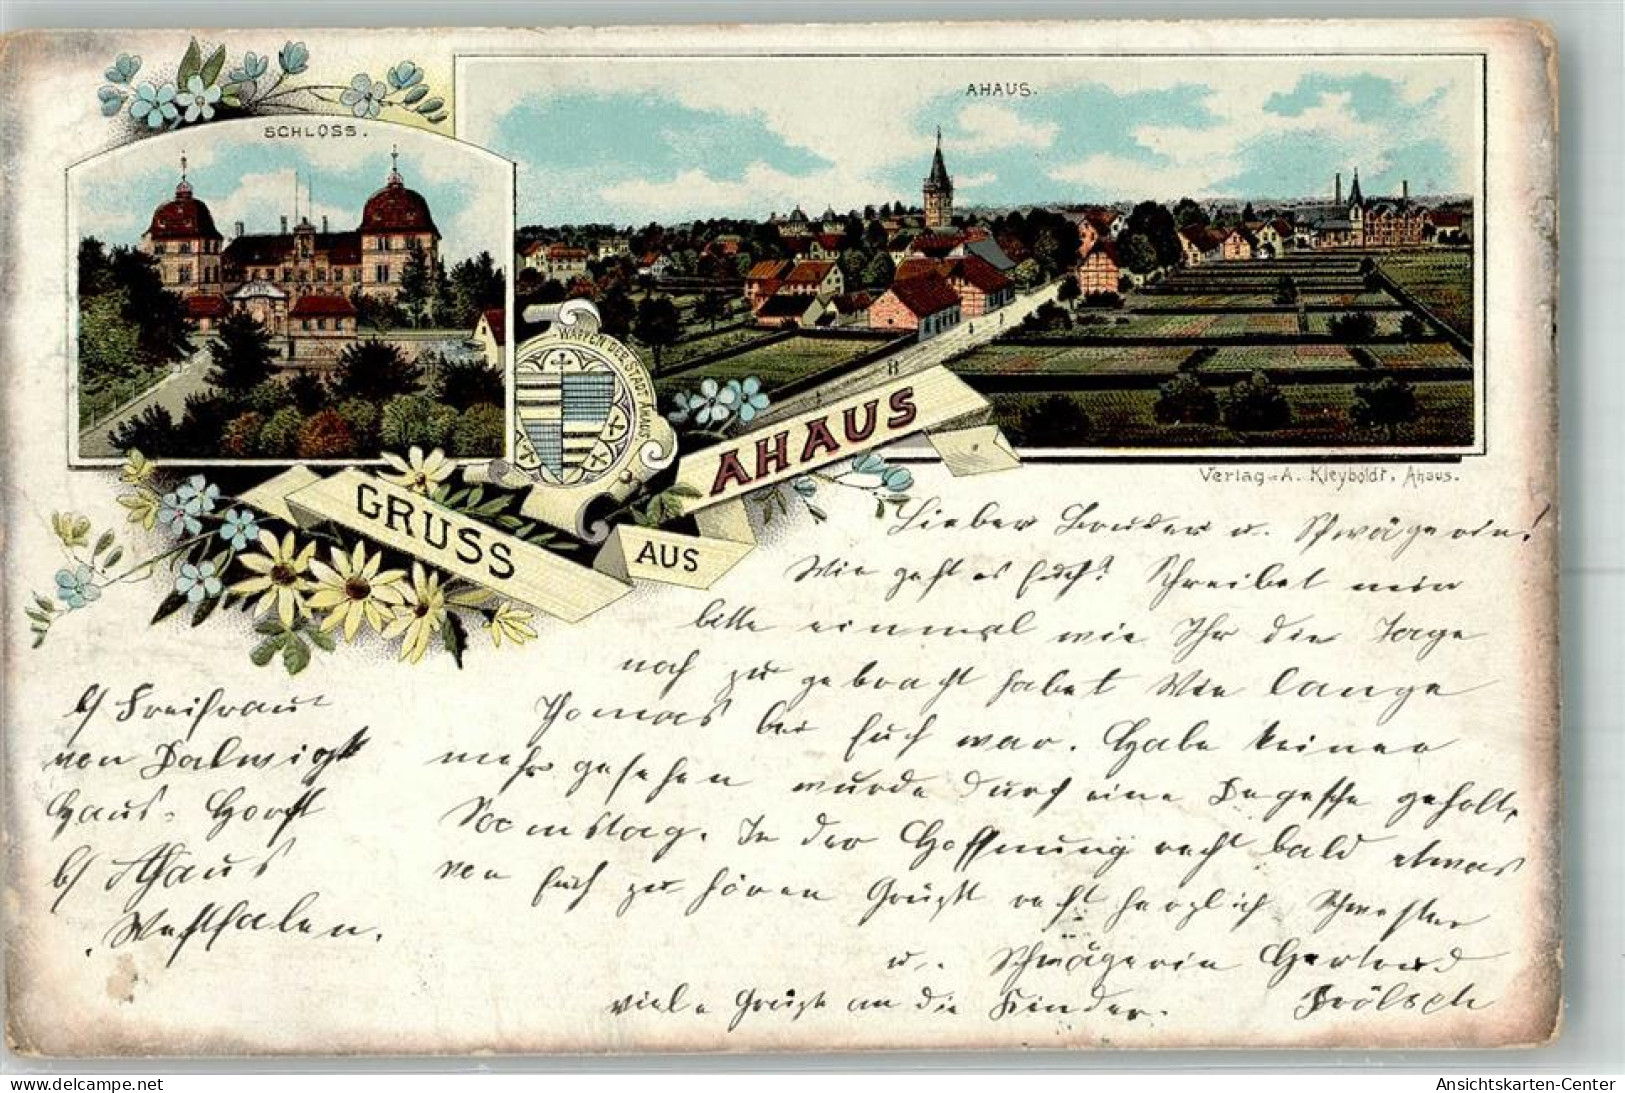 SCHLOSS.
AHAUS.
WAPPEN DER STADT AHAUS
GRUSS
AUS
AHAUS
Verlag A. Kleyboldt, Ahaus.
Lieber Bruder u. Schwägerin!
Wie geht es Euch? Schreibet mir
bitte einmal wie Ihr die Tage
noch zu gebracht habet Wie lange
Thomas bei Euch war. Habe keinen
mehr gesehen wurde durch eine geholt,
Samstag. In der Hoffnung recht bald etwas
von Euch zu hören Grüßt recht herzlich Schwester
u. Schwägerin Gertrud
viele Grüße an die Kinder.
b/ Freifrau
von Dalwigk
Haus-Horst
b/ Ahaus
Westfalen.
akpool.de
Ansichtskarten-Center